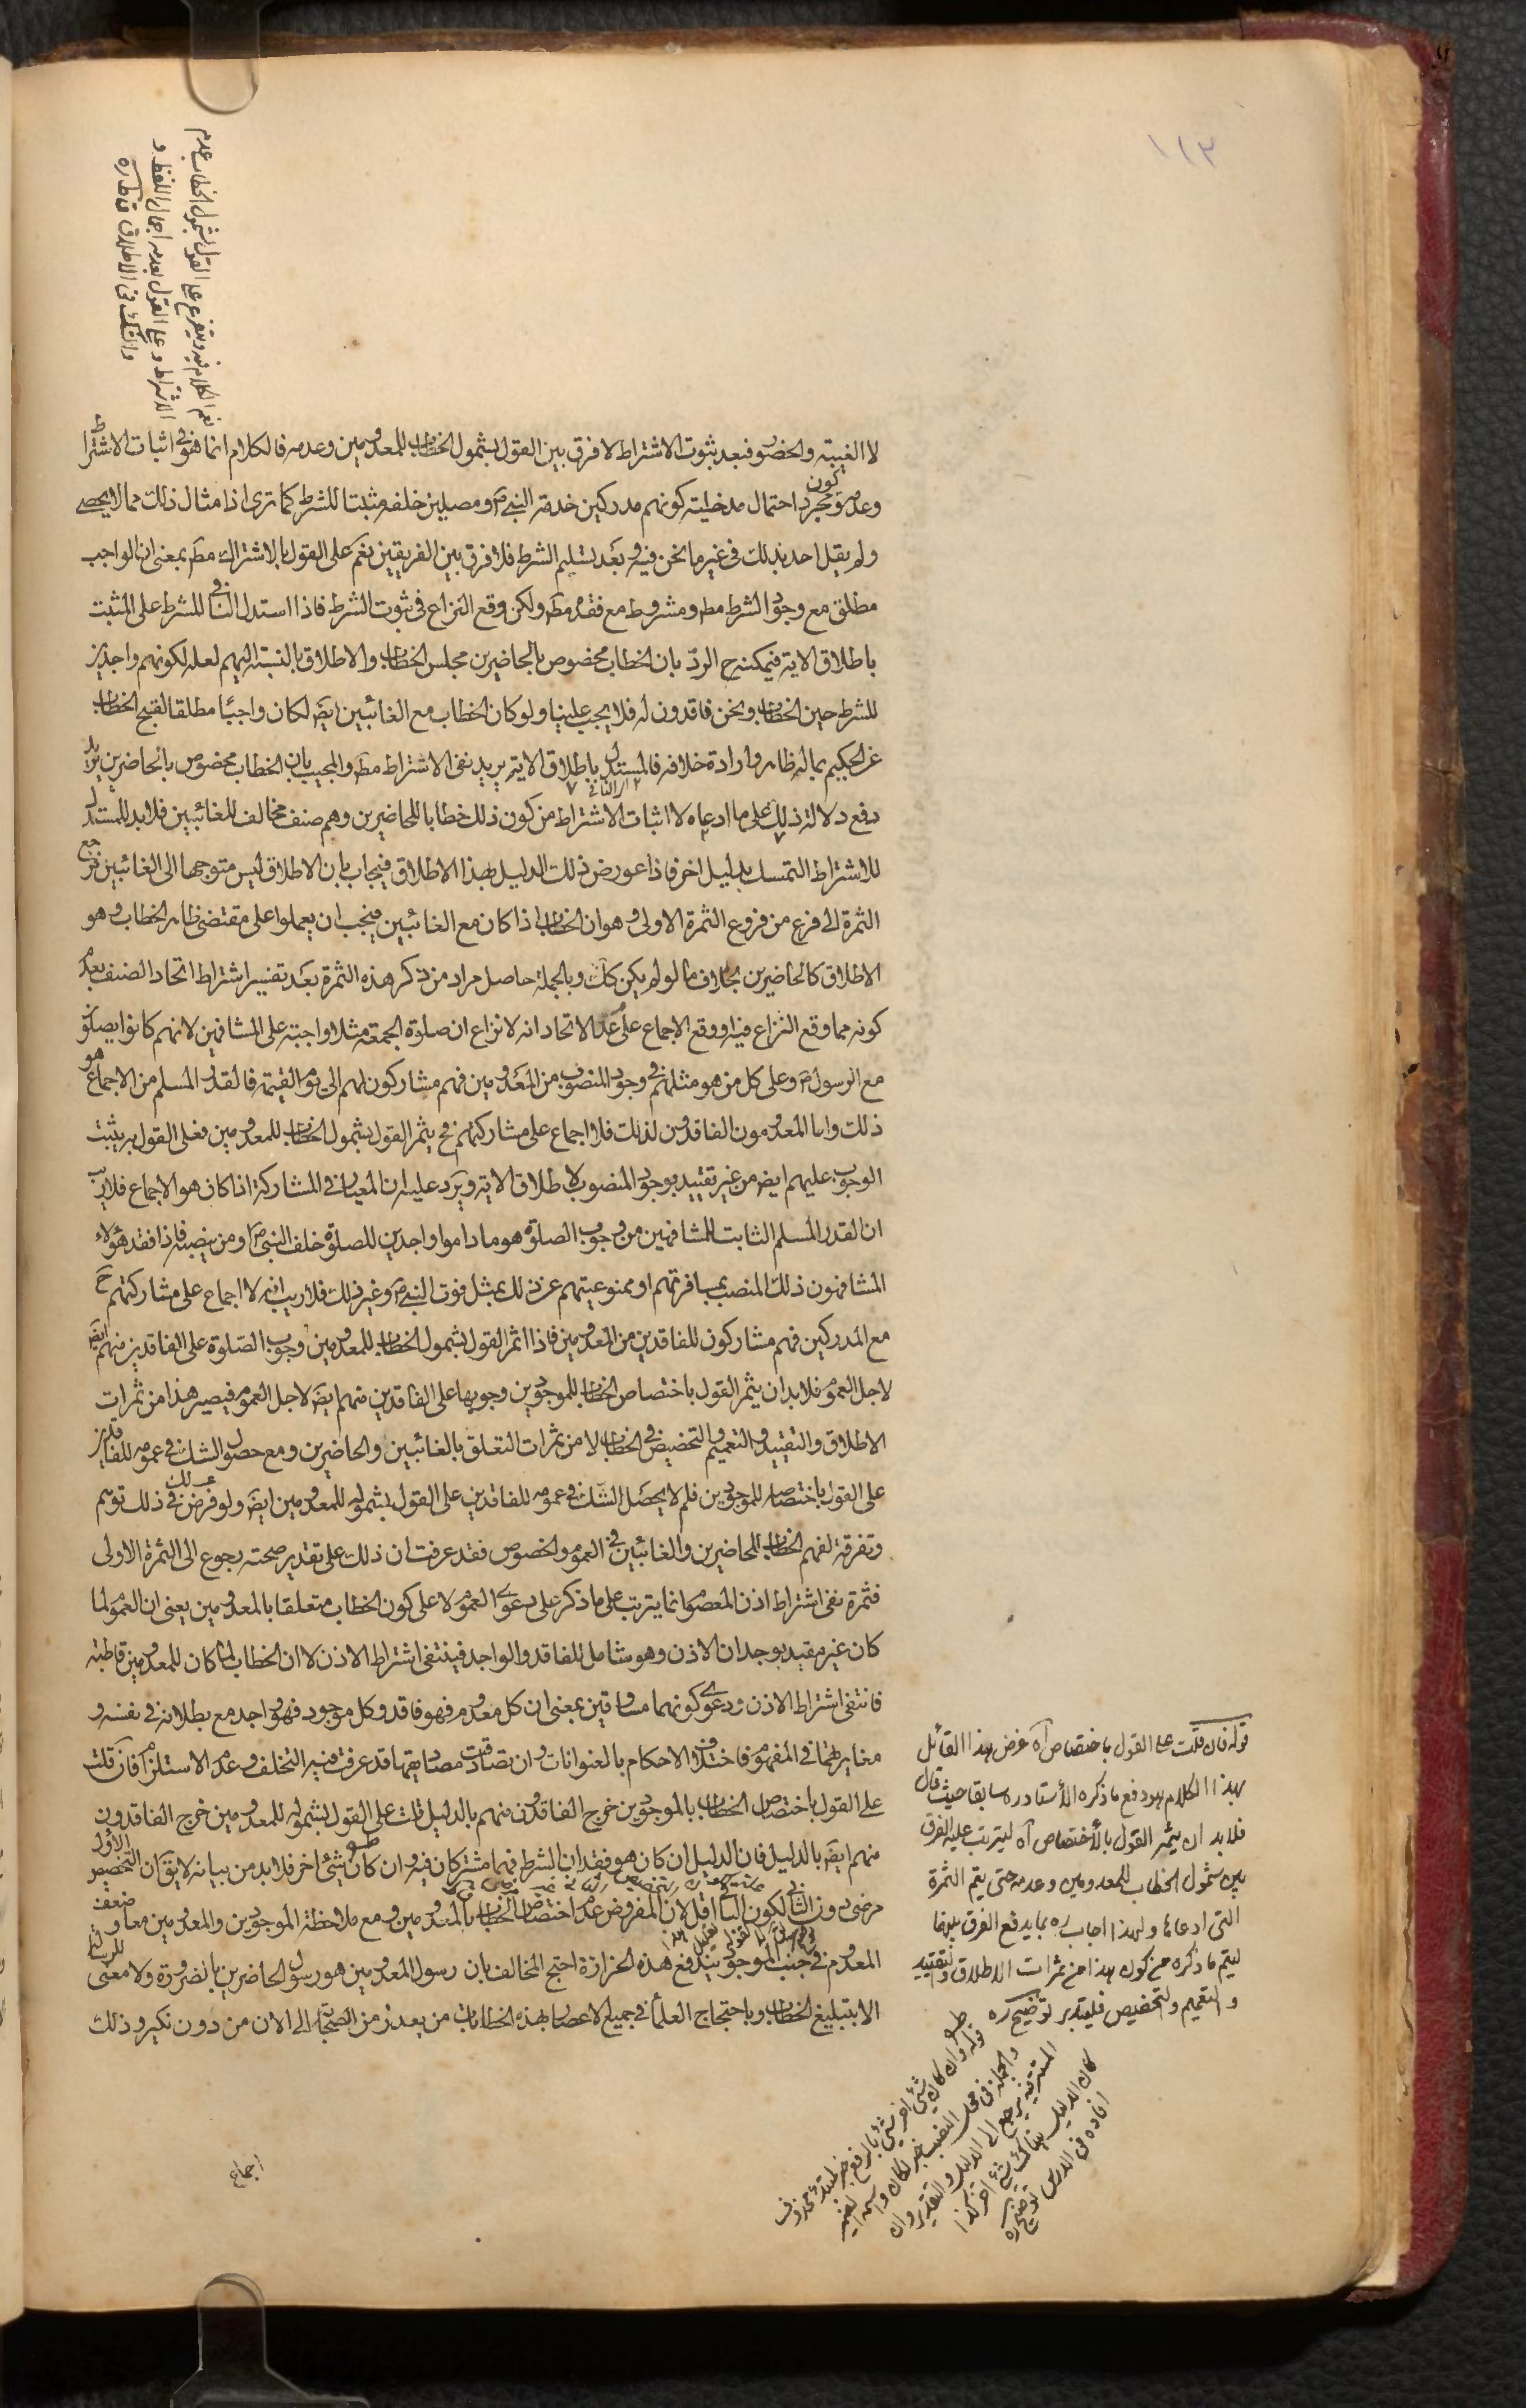 ١١٣
نعم الكلام فيه ويتفرع على القول بشمول الخطاب عدم
الاشتراط وعلى القول بعدمه اجمال اللفظ و
والشك في الاطلاق فافاده
لا الغيبة والحضور فبعد ثبوت الاشتراط لا فرق بين القول بشمول الخطاب للمعدومين وعدمه فالكلام انما هو في اثبات الاشتراط
وعدمه وكون مجرد احتمال مدخلية كونهم مدركين خدمة النبي ص ومصلين خلفه مثبتا للشرط كما ترى اذ امثال ذلك مما لا يحصى
ولم يقل احد بذلك في غير ما نحن فيه وبعد تسليم الشرط فلا فرق بين الفريقين نعم على القول بالاشتراك مط بمعنى ان الواجب
مطلق مع وجود الشرط مط ومشروط مع فقده مط ولكن وقع النزاع في ثبوت الشرط فاذا استدل النافي للشرط على المثبت
باطلاق الاية فيمكنه ح الرد بان الخطاب مخصوص بالحاضرين مجلس الخطاب والاطلاق بالنسبة اليهم لعله لكونهم واجدين
للشرط حين الخطاب ونحن فاقدون له فلا يجب علينا ولو كان الخطاب مع الغائبين ايض لكان واجبا مطلقا لقبح الخطاب
عن الحكيم بماله ظاهر وارادة خلافه فالمستدل باطلاق الاية يريد نفى الاشتراط مط والمجيب بان الخطاب مخصوص بالحاضرين يريد
دفع دلالة ذلك على ما ادعاه لا اثبات الاشتراط من كون ذلك خطابا للحاضرين وهم صنف مخالف للغائبين فلابد للمستدل
للاشتراط التمسك بدليل اخر فاذا عورض ذلك الدليل بهذا الاطلاق فيجاب بان الاطلاق ليس متوجها الى الغائبين فرجع
الثمرة الى فرع من فروع الثمرة الاولى وهو ان الخطاب اذا كان مع الغائبين فيجب ان يعملوا على مقتضى ظاهر الخطاب وهو
الاطلاق كالحاضرين بخلاف ما لو لم يكن كك وبالجملة حاصل مراد من ذكر هذه الثمرة بعد تفسير اشتراط اتحاد الصنف بعدم
كونه مما وقع النزاع فيه او وقع الاجماع على عدم الاتحاد انه لا نزاع ان صلوة الجمعة مثلا واجبة على المشافهين لانهم كانوا يصلون
مع الرسول ص وعلى كل من هو مثلهم في وجود المنصوب من المعدومين فهم مشاركون لهم الى يوم القيمة فالقدر المسلم من الاجماع هو
ذلك واما المعدومون الفاقدون لذلك فلا اجماع على مشاركتهم فح يثمر القول بشمول الخطاب للمعدومين فعلى القول به يثبت
الوجوب عليهم ايض من غير تقييد بوجود المنصوب لاطلاق الاية ويرد عليه ان المعيار في المشاركة اذا كان هو الاجماع فلا ريب
ان القدر المسلم الثابت للمشافهين من وجوب الصلوة هو ما داموا واجدين للصلوة خلف النبي ص او من ينصبه فاذا فقد هؤلاء
المشافهون ذلك المنصب بمسافرتهم او ممنوعيتهم عن ذلك بمثل فوت النبي ص وغير ذلك فلا ريب انه لا اجماع على مشاركتهم ح
مع المدركين فهم مشاركون للفاقدين من المعدومين فاذا اثمر القول بشمول الخطاب للمعدومين وجوب الصلوة على الفاقدين منهم ايض
لاجل العموم فلابد ان يثمر القول باختصاص الخطاب للموجودين وجوبها على الفاقدين منهم ايض لاجل العموم فيصير هذا من ثمرات
الاطلاق والتقييد والتعميم والتخصيص في الخطاب لا من ثمرات التعلق بالغائبين والحاضرين ومع حصول الشك في عمومه للفاقدين
على القول باختصاصه للموجودين فلم لا يحصل الشك في عمومه للفاقدين على القول بشموله للمعدومين ايض ولو فرض لك في ذلك توهم
وتفرقة لفهم الخطاب للحاضرين والغائبين في العموم والخصوص فقد عرفت ان ذلك على تقدير صحته رجوع الى الثمرة الاولى
فثمرة نفى اشتراط اذن المعصوم انما يترتب على ما ذكر على دعوى العموم لا على كون الخطاب متعلقا بالمعدومين يعنى ان العموم لما
كان غير مقيد بوجدان الاذن وهو شامل للفاقد والواجد فينتفى اشتراط الاذن لا ان الخطاب لما كان للمعدومين قاطبة
فانتفى اشتراط الاذن ودعوى كونهما مساوقين بمعنى ان كل معدوم فهو فاقد وكل موجود فهو واجد مع بطلانه في نفسه و
مغايرتهما في المفهوم فاختلاف الاحكام بالعنوانات وان تصادقت مصاديقها قد عرفت فيه التخلف وعدم الاستلزام فان قلت
على القول باختصاص الخطاب بالموجودين خرج الفاقدون منهم بالدليل قلت على القول بشموله للمعدومين خرج الفاقدون
منهم ايض بالدليل فان الدليل ان كان هو فقدان الشرط فهما مشتركان فيه وان كان شيئ اخر فلابد من بيانه لا يق ان التخصيص الاول
مرضى دون الثاني لكون الباقي اقل لان المفروض عدم اختصاص الخطاب بالمعدومين ومع ملاحظة الموجودين والمعدومين معا وضعف
المعدوم في جنب الموجود يندفع هذه الحزازة احتج المخالف بان رسول المعدومين هو رسول الحاضرين بالضرورة ولا معنى للرسالة
الا بتبليغ الخطاب وباحتجاج العلماء في جميع الاعصار بهذه الخطابات من بعد زمن الصحابة الى الان من دون نكير وذلك
اجماع
قوله فان قلت على القول باختصاص اه غرض هذا القائل
بهذا الكلام هو دفع ما ذكره الأستاد ره سابقا حيث قال
فلابد ان يثمر القول بالأختصاص اه ليترتب عليه الفرق
بين شمول الخطاب للمعدومين وعدمه حتى يتم الثمرة
التى ادعاها ولهذا اجاب ره بما يدفع الفرق بينهما
ليتم ما ذكره من كون هذا من ثمرات الاطلاق والتقييد
والتعميم والتخصيص فليتدبر توضيح ره
قوله وان كان شيئ اخر شيئ بالرفع خبر لمبتدء محذوف
والجملة في محل النصب خبر لكان واسمه الضمير
المستتر فيه يرجع الى الدليل والتقدير وان
كان الدليل هناك شيئ اخر كذا
افاده في الدرس توضيح ره